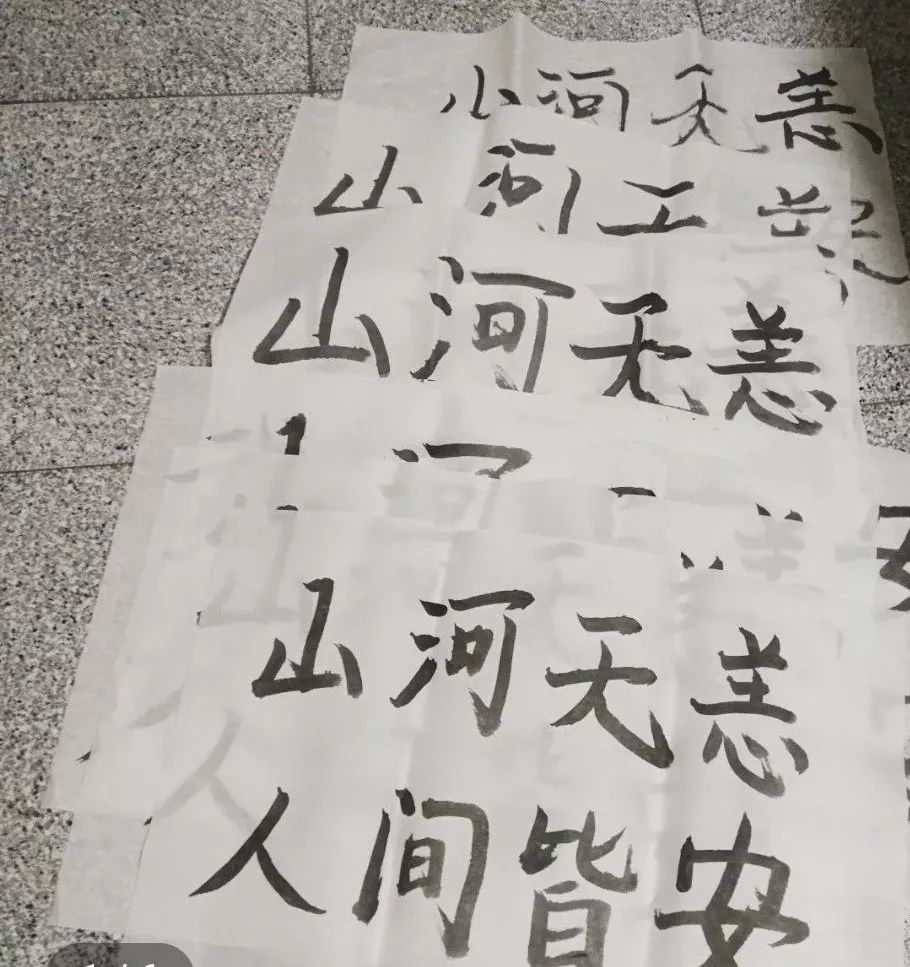 山河无恙
山河
山河无恙
山河无恙
人间皆安